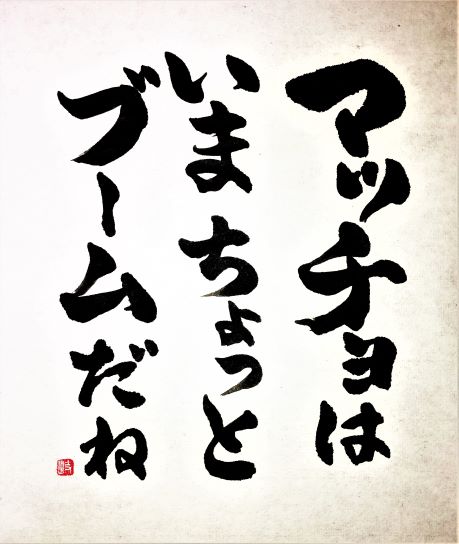 マッチョは
いまちょっと
ブームだね